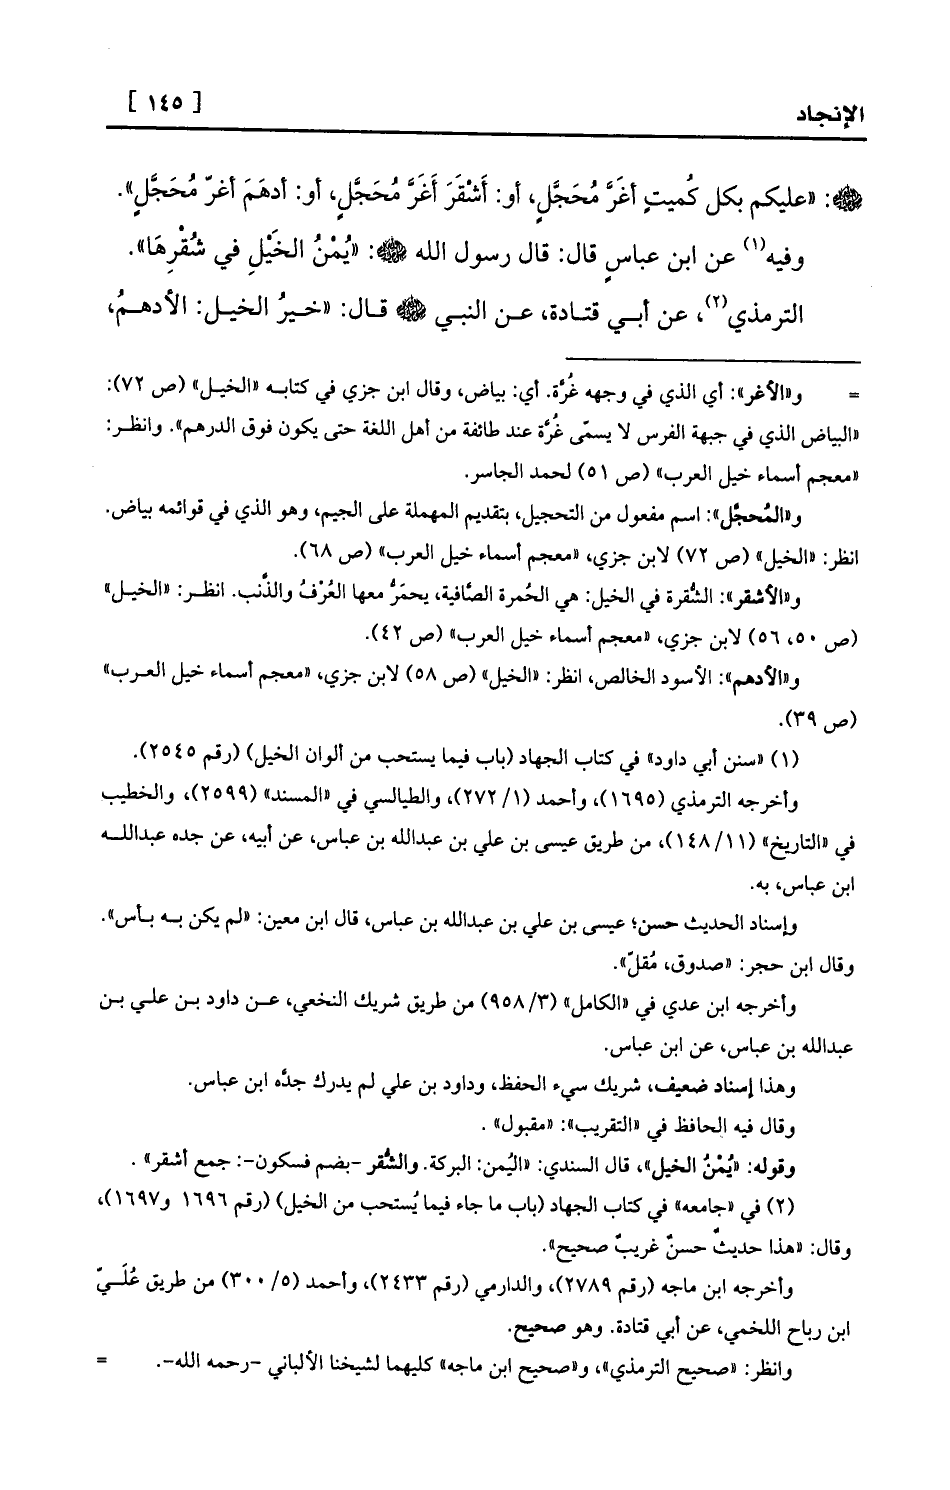 الإنجاد
[ ١٤٥ ]
ﷺ: «عليكم بكل كُميتٍ أغَرَّ مُحَجَّلٍ، أو: أَشْقَرَ أَغَرَّ مُحَجَّلٍ، أو: أدهَمَ أغرّ مُحَجَّلٍ».
وفيه(١) عن ابن عباسٍ قال: قال رسول الله ﷺ: «يُمْنُ الخَيْلِ في شُقْرِهَا».
الترمذي(٢)، عن أبي قتادة، عن النبي ﷺ قال: «خيرُ الخيل: الأدهمُ،
= و«الأغر»: أي الذي في وجهه غُرَّة. أي: بياض، وقال ابن جزي في كتابه «الخيل» (ص ٧٢):
«البياض الذي في جبهة الفرس لا يسمّى غُرَّة عند طائفة من أهل اللغة حتى يكون فوق الدرهم». وانظر:
«معجم أسماء خيل العرب» (ص ٥١) لحمد الجاسر.
و«المُحجَّل»: اسم مفعول من التحجيل، بتقديم المهملة على الجيم، وهو الذي في قوائمه بياض.
انظر: «الخيل» (ص ٧٢) لابن جزي، «معجم أسماء خيل العرب» (ص ٦٨).
و«الأشقر»: الشُّقرة في الخيل: هي الحُمرة الصَّافية، يحمَرُّ معها العُرْفُ والذَّنب. انظر: «الخيل»
(ص ٥٠، ٥٦) لابن جزي، «معجم أسماء خيل العرب» (ص ٤٢).
و«الأدهم»: الأسود الخالص، انظر: «الخيل» (ص ٥٨) لابن جزي، «معجم أسماء خيل العرب»
(ص ٣٩).
(١) «سنن أبي داود» في كتاب الجهاد (باب فيما يستحب من ألوان الخيل) (رقم ٢٥٤٥).
وأخرجه الترمذي (١٦٩٥)، وأحمد (١/ ٢٧٢)، والطيالسي في «المسند» (٢٥٩٩)، والخطيب
في «التاريخ» (١١/ ١٤٨)، من طريق عيسى بن علي بن عبدالله بن عباس، عن أبيه، عن جده عبدالله
ابن عباس، به.
وإسناد الحديث حسن؛ عيسى بن علي بن عبدالله بن عباس، قال ابن معين: «لم يكن به بأس».
وقال ابن حجر: «صدوق، مُقلّ».
وأخرجه ابن عدي في «الكامل» (٣/ ٩٥٨) من طريق شريك النخعي، عن داود بن علي بن
عبدالله بن عباس، عن ابن عباس.
وهذا إسناد ضعيف، شريك سيء الحفظ، وداود بن علي لم يدرك جدَّه ابن عباس.
وقال فيه الحافظ في «التقريب»: «مقبول» .
وقوله: «يُمْنُ الخيل»، قال السندي: «اليُمن: البركة. والشُّقر -بضم فسكون-: جمع أشقر» .
(٢) في «جامعه» في كتاب الجهاد (باب ما جاء فيما يُستحب من الخيل) (رقم ١٦٩٦ و١٦٩٧)،
وقال: «هذا حديثٌ حسنٌ غريبٌ صحيح».
وأخرجه ابن ماجه (رقم ٢٧٨٩)، والدارمي (رقم ٢٤٣٣)، وأحمد (٥/ ٣٠٠) من طريق عُلَيّ
ابن رباح اللخمي، عن أبي قتادة. وهو صحيح.
وانظر: «صحيح الترمذي»، و«صحيح ابن ماجه» كليهما لشيخنا الألباني -رحمه الله-. =